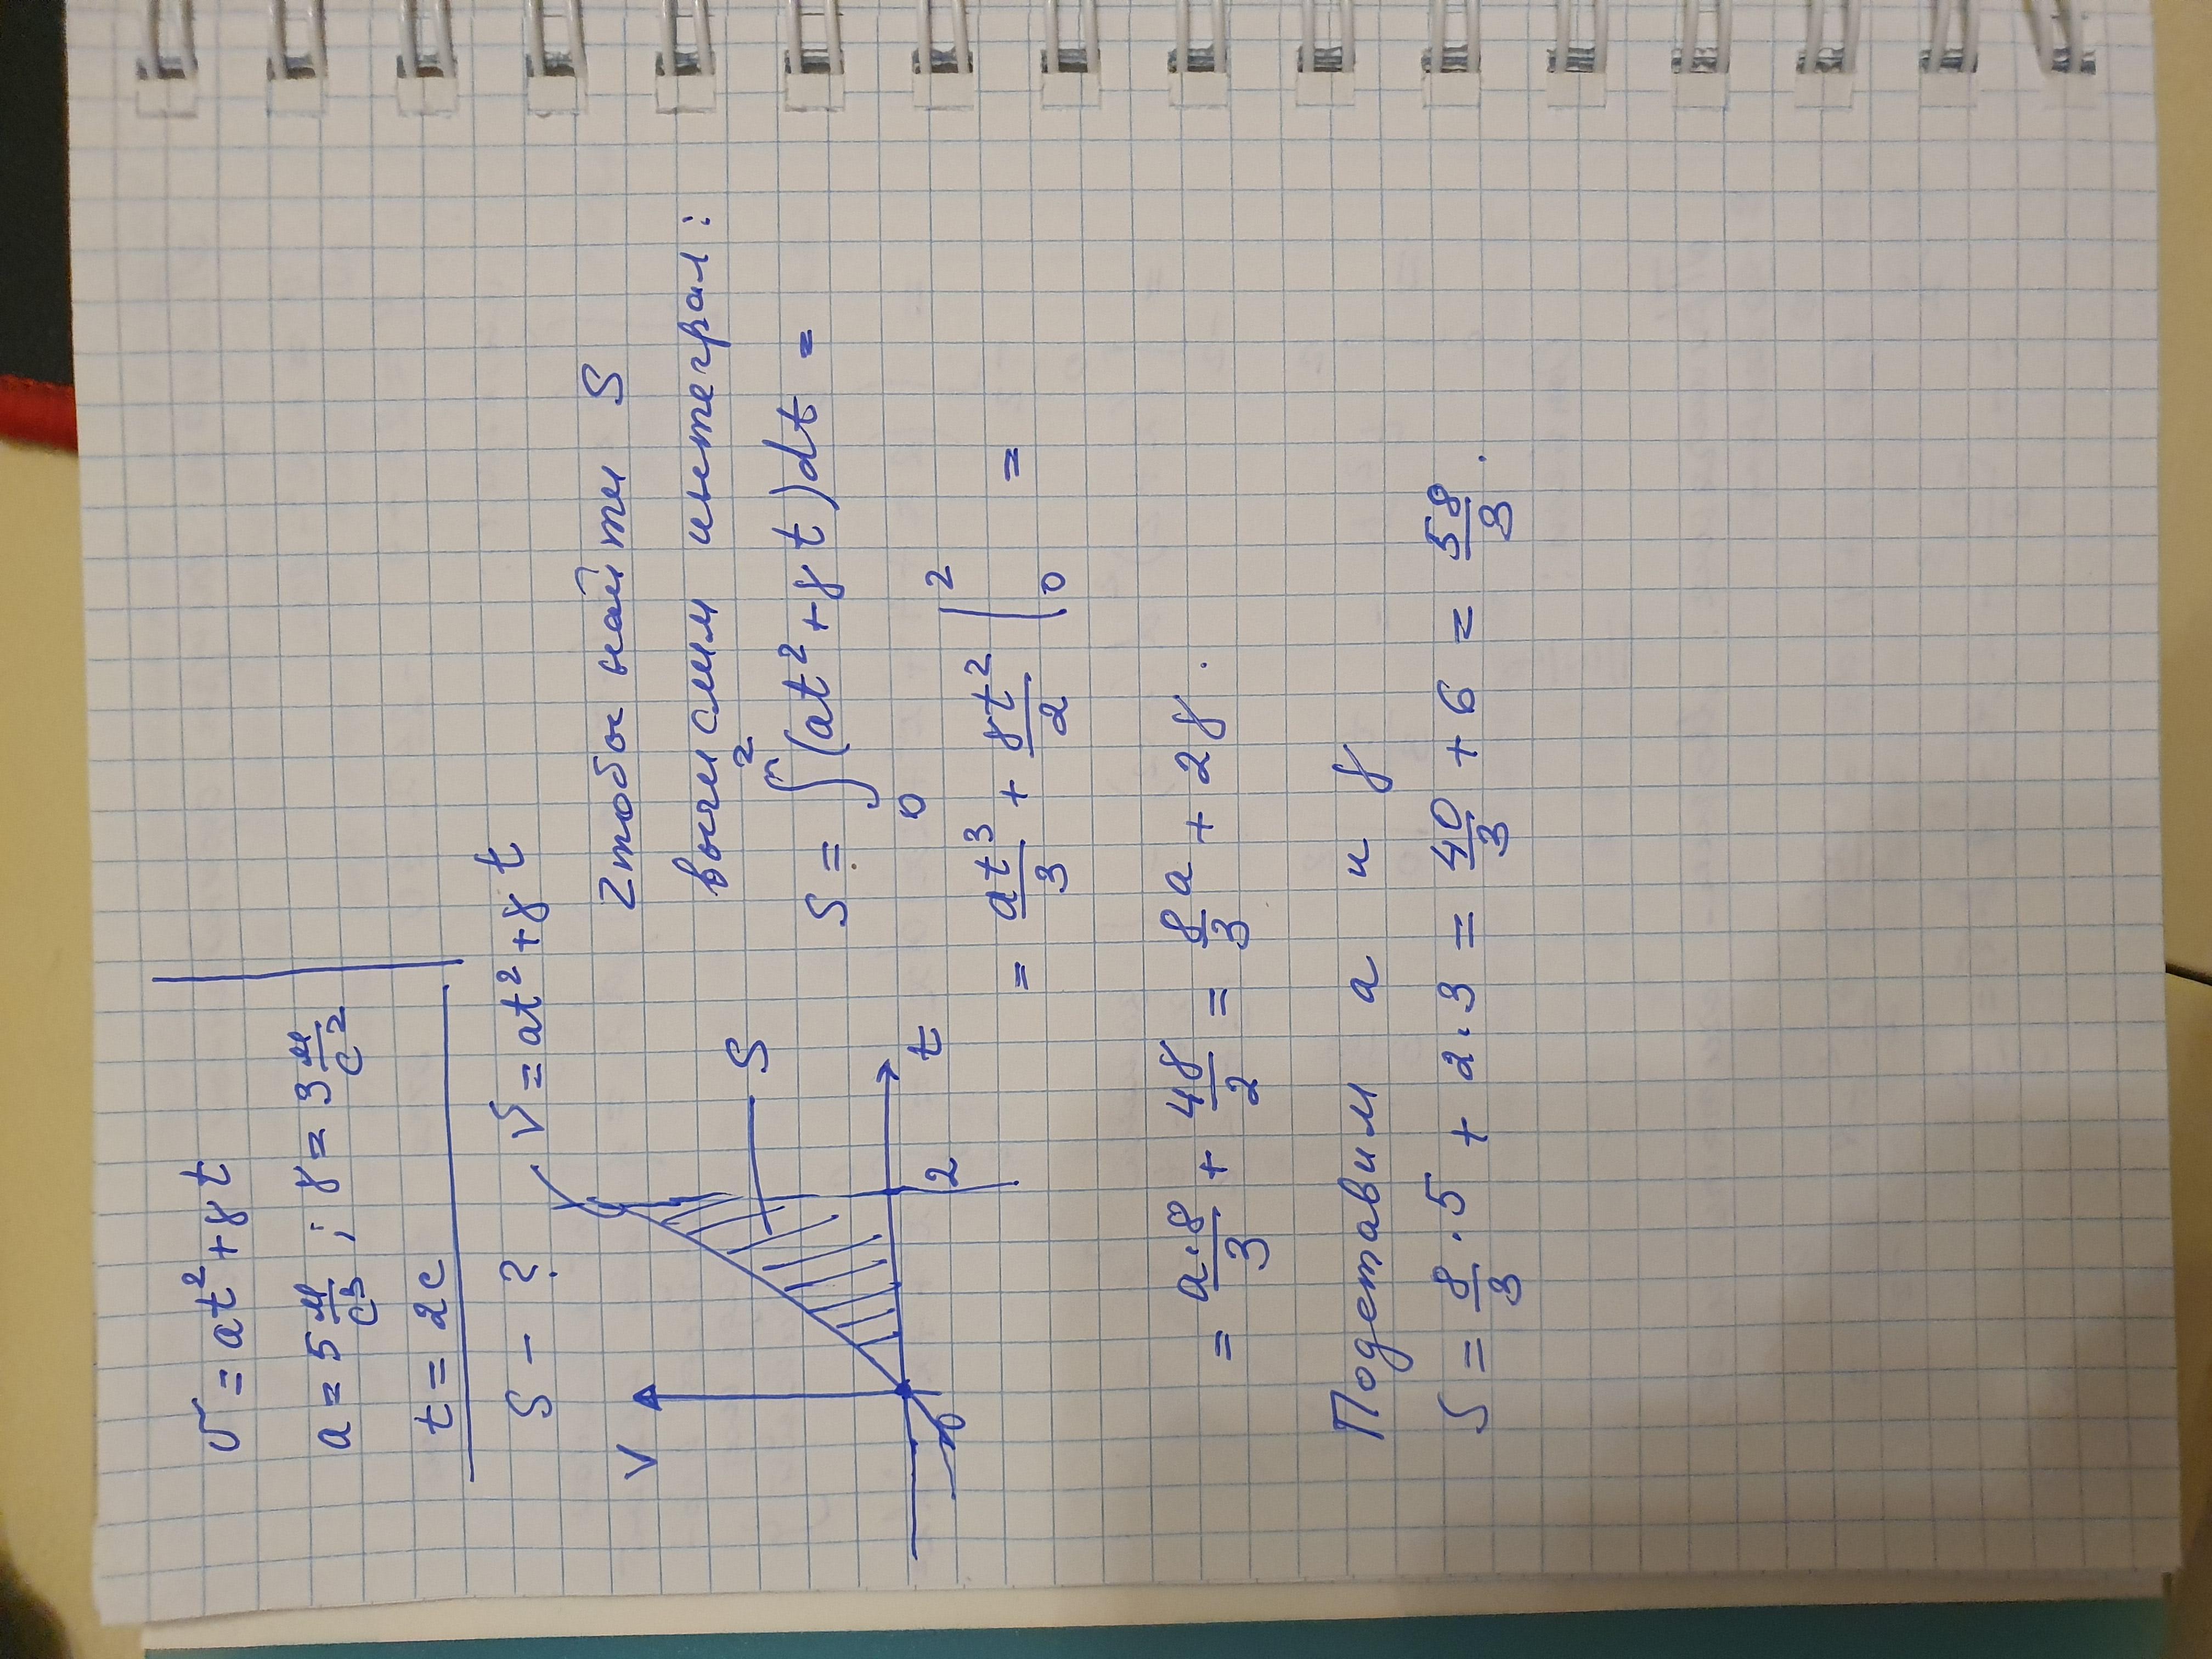 v = at² + γt
a = 5 м/с³ ; γ = 3 м/с²
t = 2с
S - ?
v = at² + γt
V
S
t
2
0
Чтобы найти S
вычислим интеграл:
S = ∫₀² (at² + γt)dt =
= at³/3 + γt²/2 |₀² =
= a·8/3 + 4γ/2 = 8/3 a + 2γ.
Подставим a и γ
S = 8/3 · 5 + 2·3 = 40/3 + 6 = 58/3.